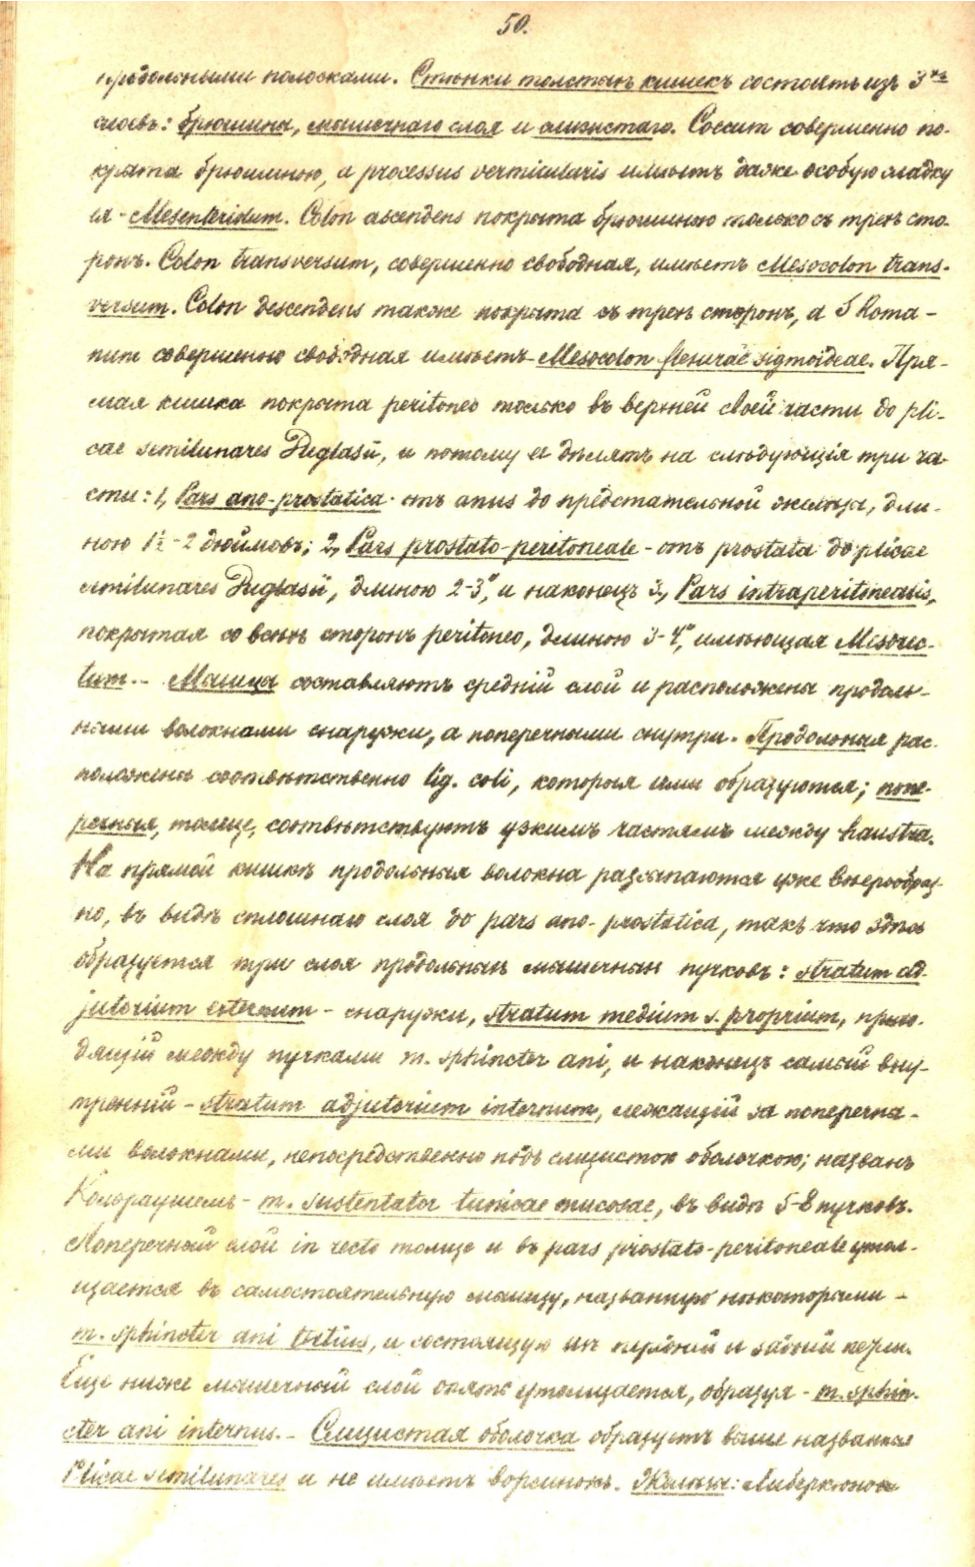 50.
продольными полосками. Стѣнки толстыхъ кишекъ состоятъ изъ 3хъ
слоевъ: брюшины, мышечнаго слоя и слизистаго. Coecum совершенно по-
крыта брюшиною, а processus vermicularis имѣетъ даже особую складку
ея - Mesenteridum. Colon ascendens покрыта брюшиною только съ трехъ сто-
ронъ. Colon transversum, совершенно свободная, имѣетъ Mesocolon trans-
versum. Colon descendens также покрыта съ трехъ сторонъ, а S Roma-
num совершенно свободная имѣетъ Mesocolon flexurae sigmoideae. Пря-
мая кишка покрыта peritoneo только въ верхней своей части до pli-
cae semilunares Duglasii, и потому ее дѣлятъ на слѣдующія три ча-
сти: 1, Pars ano-prostatica - отъ anus до предстательной железы, дли-
ною 1½-2 дюймовъ; 2, Pars prostato-peritoneale - отъ prostata до plicae
semilunares Duglasii, длиною 2-3", и наконецъ 3, Pars intraperitonealis,
покрытая со всѣхъ сторонъ peritoneo, длиною 3-4", имѣющая Mesorec-
tum. - Мышцы составляютъ средній слой и расположены продоль-
ными волокнами снаружи, а поперечными снутри. Продольныя рас-
положены соотвѣтственно lig. coli, которыя ими образуются; попе-
речныя, толще, соотвѣтствуютъ узкимъ частямъ между haustra.
На прямой кишкѣ продольныя волокна разсыпаются уже вѣерообраз-
но, въ видѣ сплошнаго слоя до pars ano-prostatica, такъ что здѣсь
образуется три слоя продольныхъ мышечныхъ пучковъ: stratum ad-
jutorium externum - снаружи, stratum medium s. proprium, прохо-
дящій между пучками m. sphincter ani, и наконецъ самый вну-
тренній - stratum adjutorium internum, лежащій за поперечны-
ми волокнами, непосредственно подъ слизистой оболочкою; названъ
Кольраушемъ - m. sustentator tunicae mucosae, въ видѣ 5-8 пучковъ.
Поперечный слой in recto толще и въ pars prostato-peritoneale утол-
щается въ самостоятельную мышцу, названную нѣкоторыми -
m. sphincter ani tertius, и состоящую изъ передній и задній
Еще ниже мышечный слой опять утолщается, образуя - m. sphin-
cter ani internus. - Слизистая оболочка образуетъ выше названныя
Plicae semilunares и не имѣетъ ворсинокъ. Железы: Либеркюновы